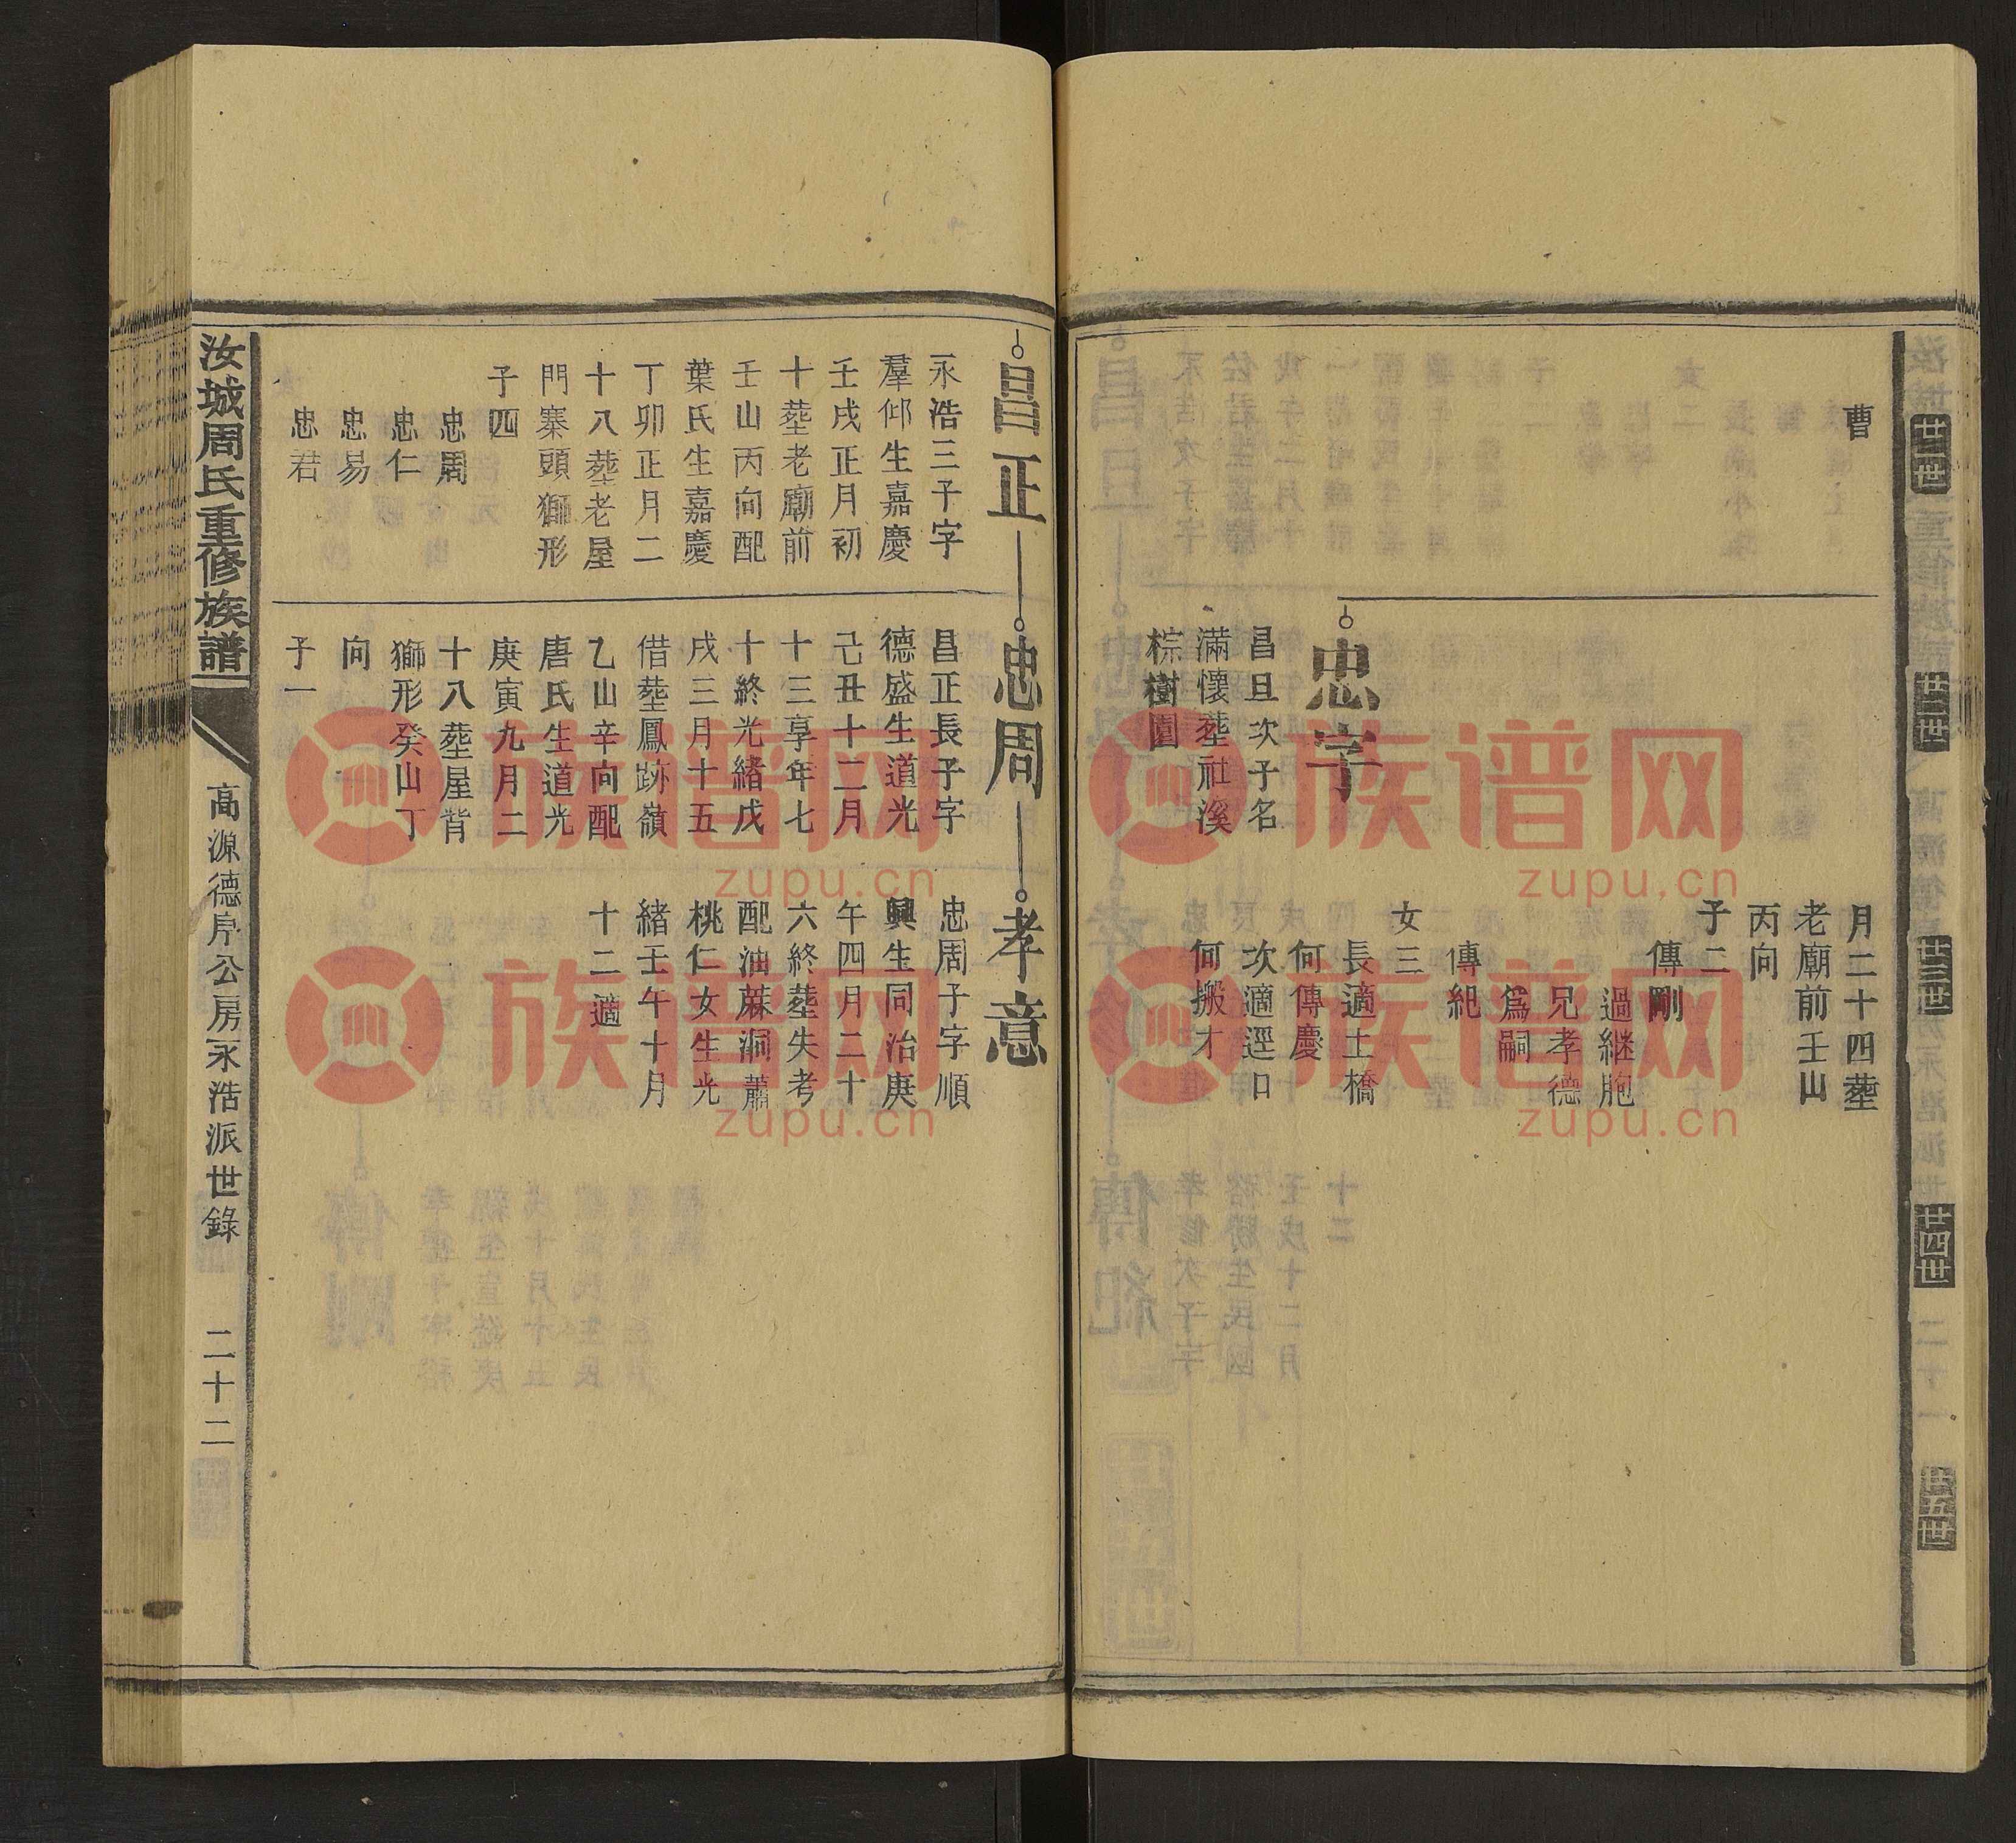 廿一世
廿二世
廿三世
廿四世
廿五世
曹
忠字
昌旦次子名
滿懷塟社溪
棕樹園
月二十四塟
老廟前壬山
丙向
子二
傳剛
過継胞
兄孝德
爲嗣
傳紀
女三
長適土橋
何傳慶
次適逕口
何搬才
昌正
永浩三子字
羣仰生嘉慶
壬戌正月初
十塟老廟前
壬山丙向配
葉氏生嘉慶
丁卯正月二
十八塟老屋
門寨頭獅形
子四
忠周
忠仁
忠易
忠若
忠周
昌正長子字
德盛生道光
己丑十二月
十三享年七
十終光緒戊
戌三月十五
借塟鳳跡嶺
乙山辛向配
唐氏生道光
庚寅九月二
十八塟屋背
獅形癸山丁
向
子一
孝意
忠周子字順
興生同治庚
午四月二十
六終塟失考
配油蔴洞蕭
桃仁女生光
緒壬午十月
十二適
汝城周氏重修族譜
高源德房公房永浩派世錄
二十二
族谱网
zupu.cn
族谱网
zupu.cn
族谱网
zupu.cn
族谱网
zupu.cn